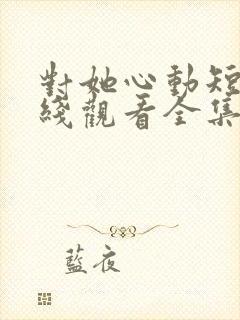 對她心動短
綫觀看全集
藍夜